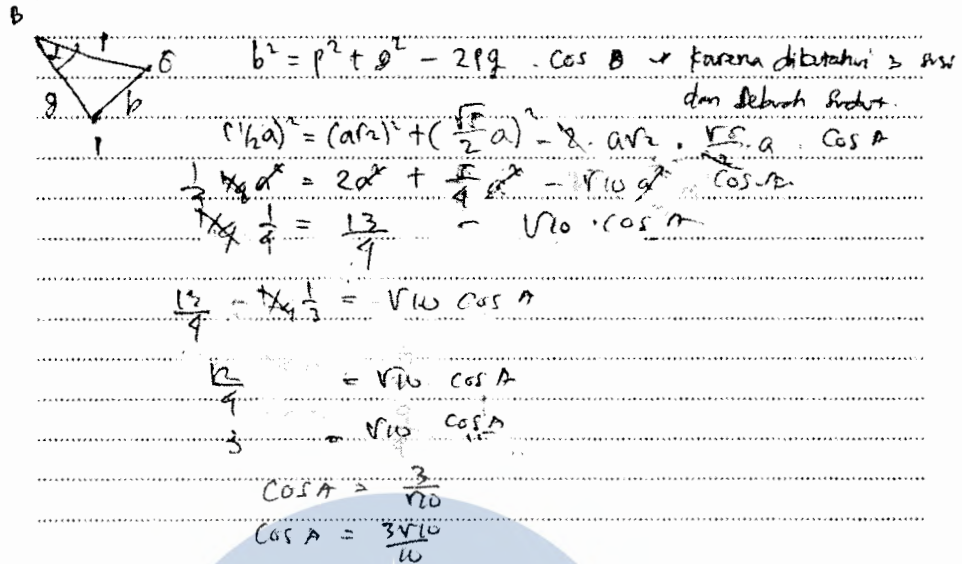 B
P
G
g
b
P
b² = p² + g² - 2pg . cos B → karena diketahui 3 sisi
dan sebuah sudut.
(½a)² = (a√2)² + (√5/2 a)² - 2 . a√2 . √5/2 . a . cos A
¼ a² = 2a² + 5/4 a² - √10 a² cos A
1/4 = 13/4 - √10 . cos A
13/4 - 1/3 = √10 cos A
12/4 = √10 cos A
3 = √10 cos A
cos A = 3/√10
cos A = 3√10/10